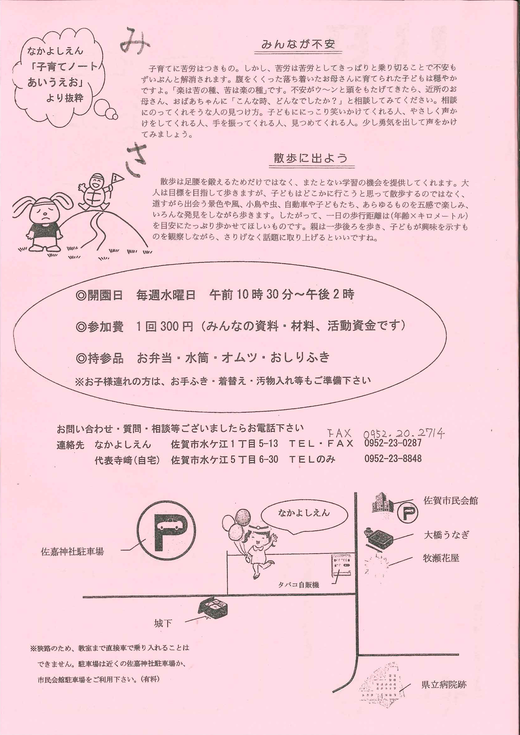 なかよしえん
「子育てノート
あいうえお」
より抜粋
み
みんなが不安
子育てに苦労はつきもの。しかし、苦労は苦労としてきっぱりと乗り切ることで不安も
ずいぶんと解消されます。腹をくくった落ち着いたお母さんに育てられた子どもは穏やか
ですよ。「楽は苦の種、苦は楽の種」です。不安がウ～ンと頭をもたげてきたら、近所のお
母さん、おばあちゃんに「こんな時、どんなでしたか？」と相談してみてください。相談
にのってくれそうな人の見つけ方。子どもににっこり笑いかけてくれる人、やさしく声か
けをしてくれる人、手を振ってくれる人、見つめてくれる人。少し勇気を出して声をかけ
てみましょう。
さ
散歩に出よう
散歩は足腰を鍛えるためだけではなく、またとない学習の機会を提供してくれます。大
人は目標を目指して歩きますが、子どもはどこかに行こうと思って散歩するのではなく、
道すがら出会う景色や風、小鳥や虫、自動車や子どもたち、あらゆるものを五感で楽しみ、
いろんな発見をしながら歩きます。したがって、一日の歩行距離は(年齢×キロメートル)
を目安にたっぷり歩かせてほしいものです。親は一歩後ろを歩き、子どもが興味を示すも
のを観察しながら、さりげなく話題に取り上げるといいですね。
◎開園日 毎週水曜日 午前10時30分～午後2時
◎参加費 1回300円（みんなの資料・材料、活動資金です）
◎持参品 お弁当・水筒・オムツ・おしりふき
※お子様連れの方は、お手ふき・着替え・汚物入れ等もご準備下さい
お問い合わせ・質問・相談等ございましたらお電話下さい
FAX 0952.20.2714
連絡先 なかよしえん 佐賀市水ケ江1丁目5-13 TEL・FAX 0952-23-0287
代表寺﨑(自宅) 佐賀市水ケ江5丁目6-30 TELのみ 0952-23-8848
なかよしえん
佐賀市民会館
P
P
大橋うなぎ
佐嘉神社駐車場
牧瀬花屋
タバコ自販機
城下
※狭路のため、教室まで直接車で乗り入れることは
できません。駐車場は近くの佐嘉神社駐車場か、
市民会館駐車場をご利用下さい。(有料)
県立病院跡